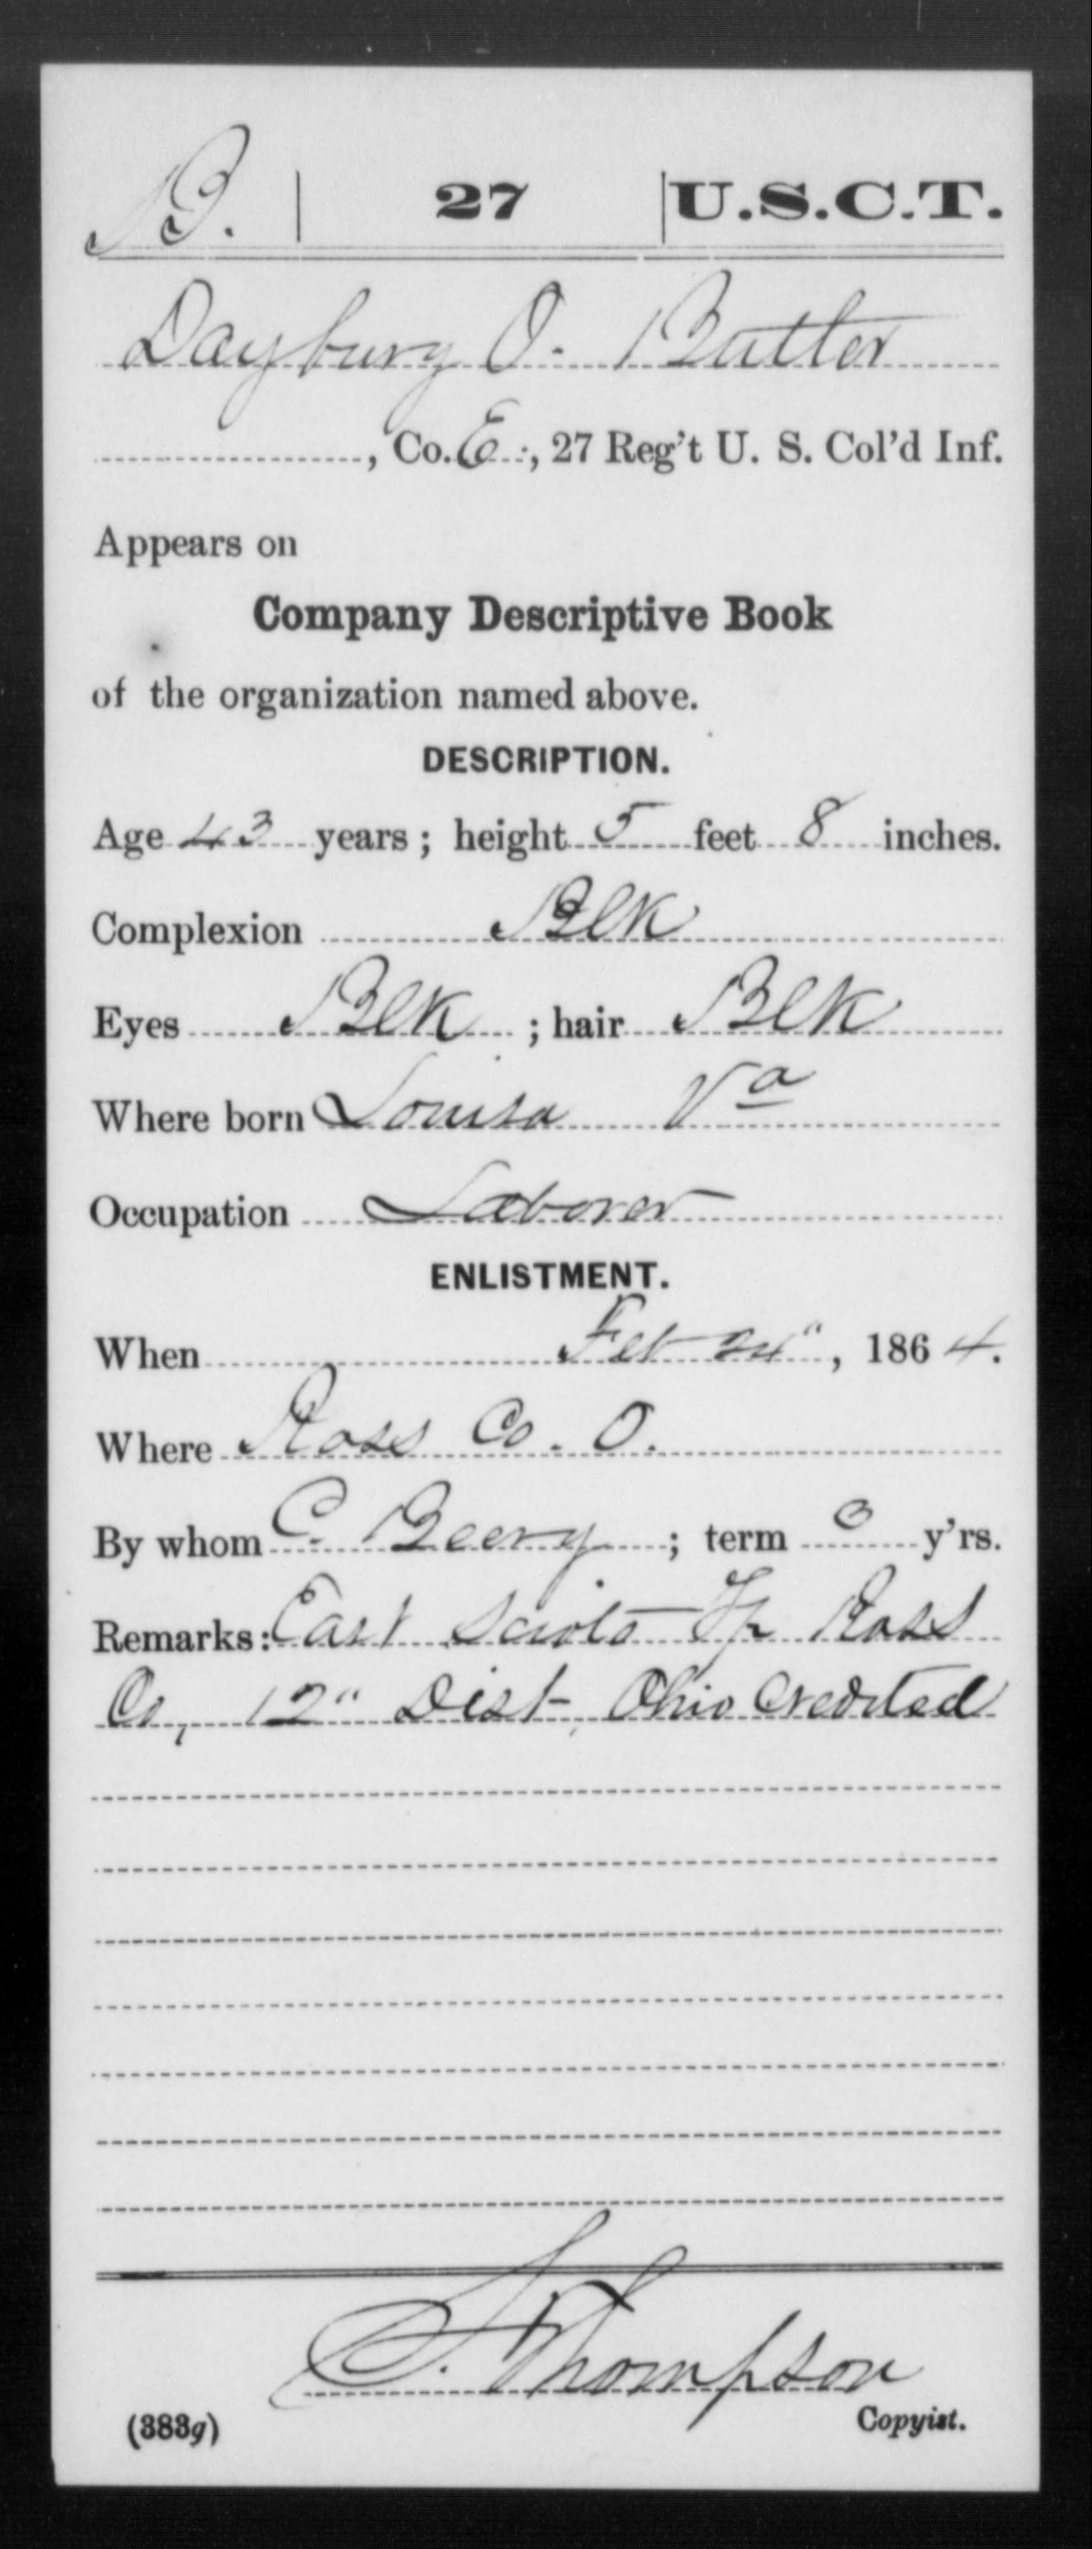 B. | 27 | U.S.C.T.
Daybury O. Butler
, Co. E., 27 Reg't U. S. Col'd Inf.
Appears on
Company Descriptive Book
of the organization named above.
DESCRIPTION.
Age 43 years; height 5 feet 8 inches.
Complexion Blk
Eyes Blk; hair Blk
Where born Louisa Va
Occupation Laborer
ENLISTMENT.
When Feb 24", 1864.
Where Ross Co. O.
By whom C. Beery; term 3 y'rs.
Remarks: East Scioto Tp Ross
Co, 12" Dist, Ohio Credited
S. Thompson
(383g) Copyist.